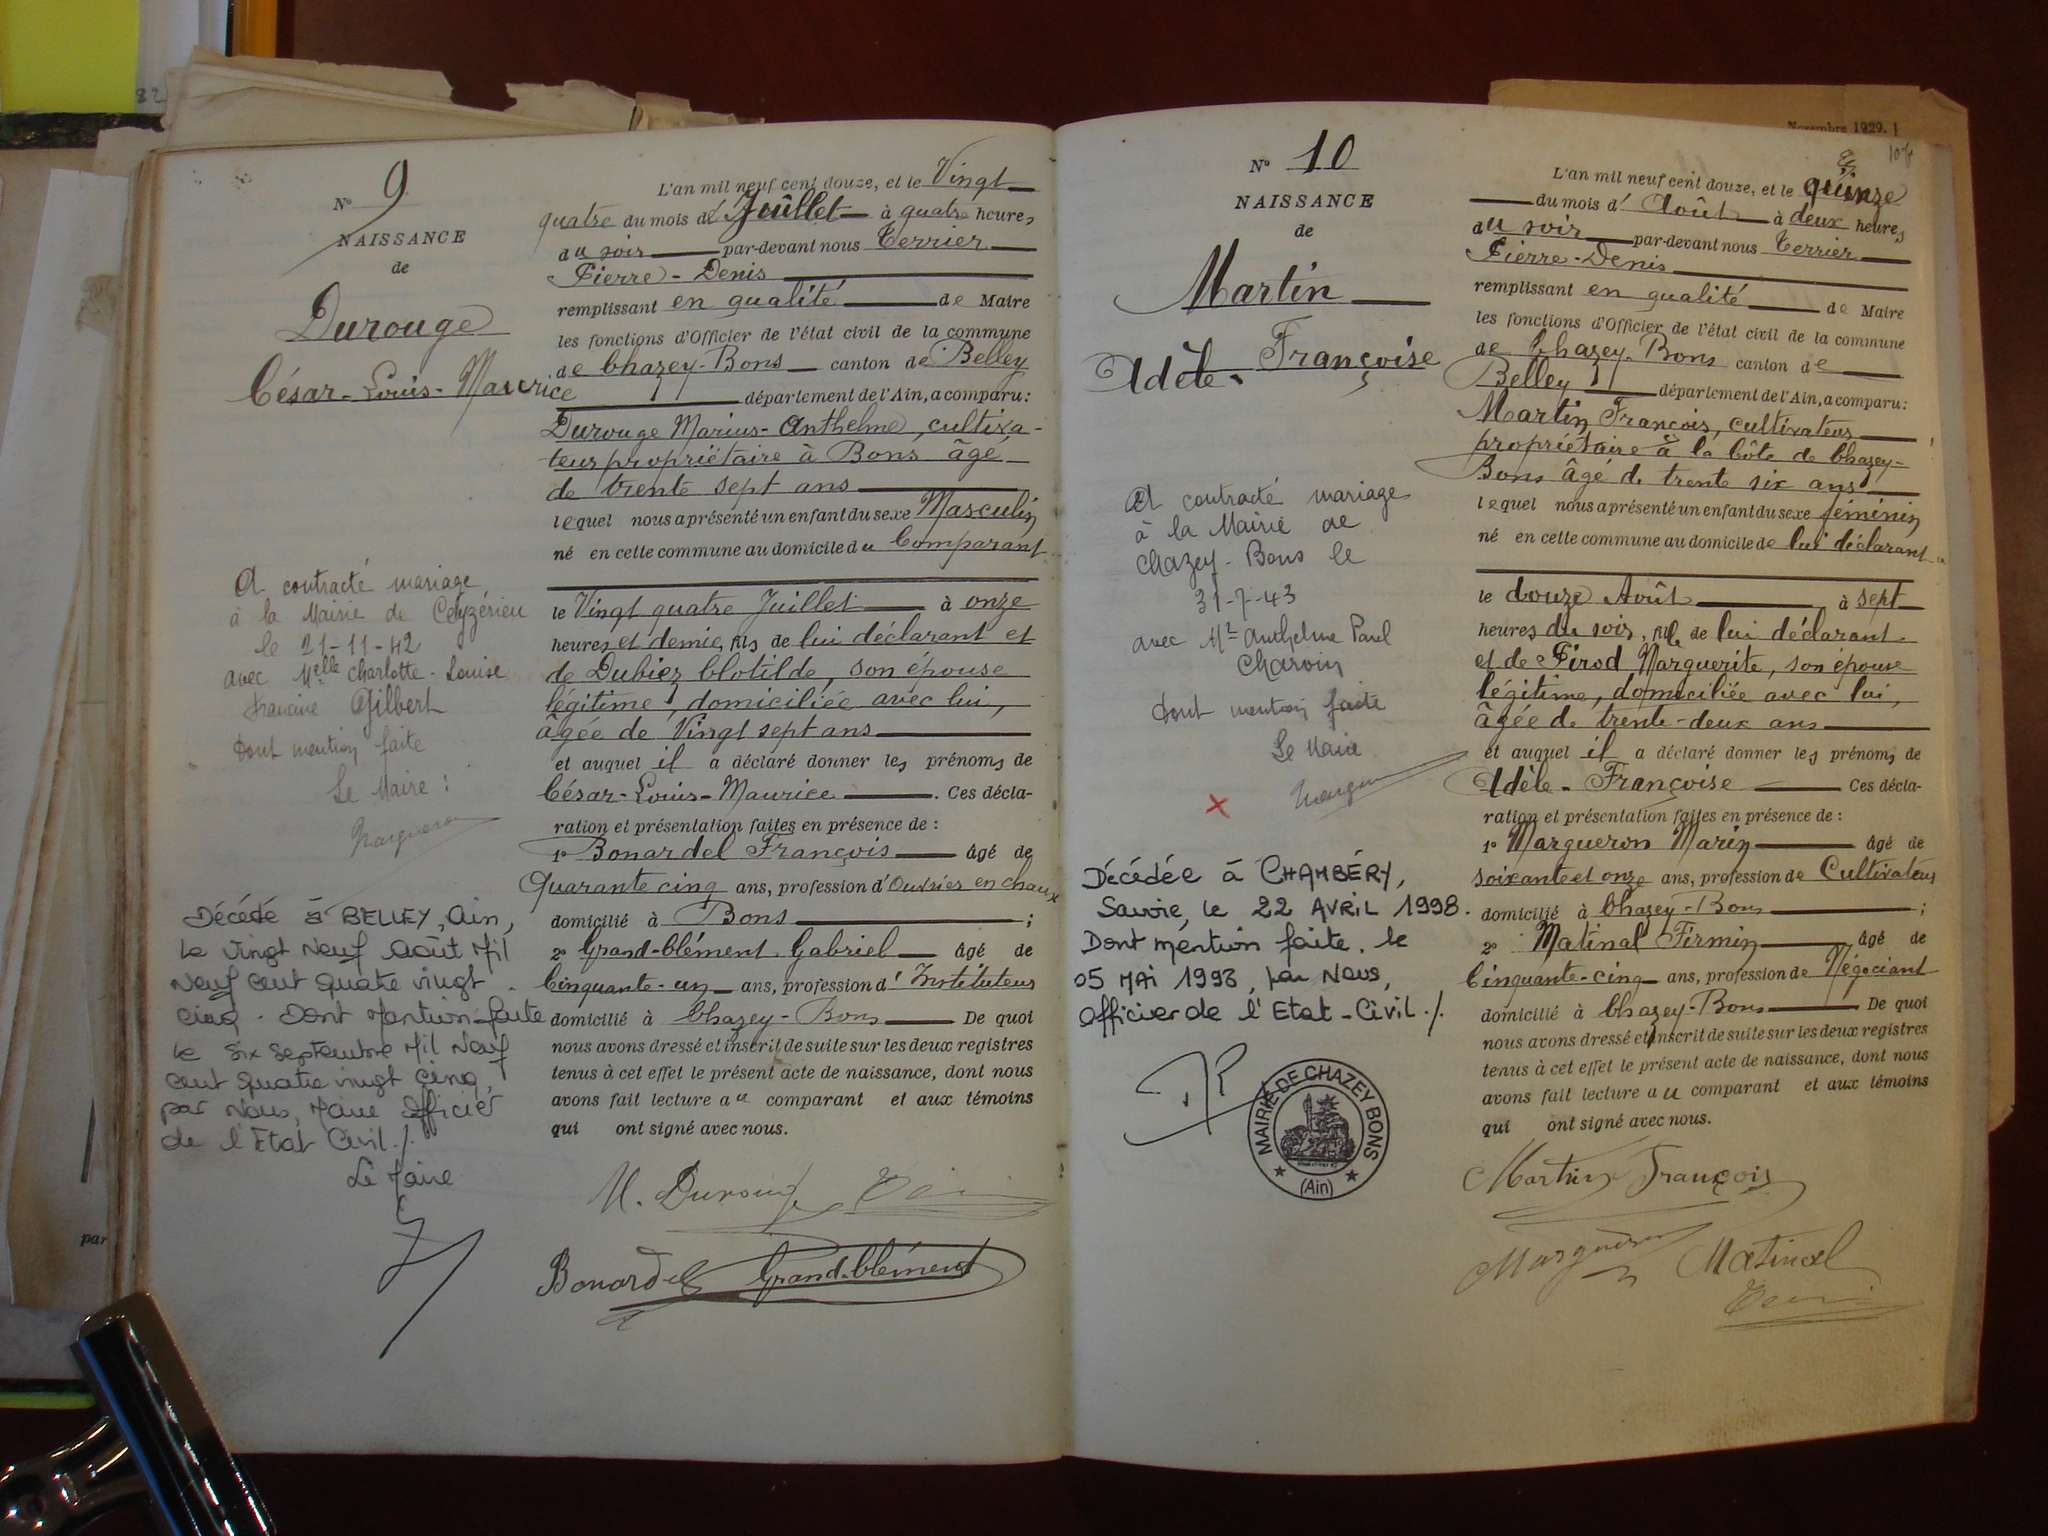 82
Nº 9
NAISSANCE
de
Durouge
César-Louis-Maurice
A contracté mariage
à la Mairie de Ceyzérieu
le 21-11-42
avec Melle Charlotte-Louise
Francine Gilbert
Dont mention faite
Le Maire :
Décédé à BELLEY, Ain,
le vingt neuf août Mil
neuf cent quatre vingt
cinq. Dont Mention faite
le six septembre Mil neuf
cent quatre vingt cinq,
par Nous, Maire Officier
de l'Etat Civil./.
Le Maire
L'an mil neuf cent douze, et le Vingt
quatre du mois de Juillet à quatre heures
du soir par-devant nous Terrier
Pierre-Denis
remplissant en qualité de Maire
les fonctions d'Officier de l'état civil de la commune
de Chazey-Bons canton de Belley
département de l'Ain, a comparu :
Durouge Marius-Anthelme, cultiva-
teur propriétaire à Bons âgé
de trente sept ans
lequel nous a présenté un enfant du sexe Masculin
né en cette commune au domicile du Comparant
le Vingt quatre Juillet à onze
heures et demie, fils de lui déclarant et
de Dubiez Clotilde, son épouse
légitime, domiciliée avec lui,
âgée de Vingt sept ans
et auquel il a déclaré donner les prénoms de
César-Louis-Maurice. Ces décla-
ration et présentation faites en présence de :
1º Bonardel François âgé de
Quarante cinq ans, profession d'Ouvrier en chaux
domicilié à Bons ;
2º Grand-Clément Gabriel âgé de
Cinquante-un ans, profession d'Instituteur
domicilié à Chazey-Bons De quoi
nous avons dressé et inscrit de suite sur les deux registres
tenus à cet effet le présent acte de naissance, dont nous
avons fait lecture au comparant et aux témoins
qui ont signé avec nous.
M. Durouge
Bonardel Grand-Clément
par
Novembre 1929.
Nº 10
NAISSANCE
de
Martin
Adèle-Françoise
A contracté mariage
à la Mairie de
Chazey-Bons le
31-7-43
avec Mr Anthelme Paul
Charvin
Dont mention faite
Le Maire
x
Décédée à CHAMBÉRY,
Savoie, le 22 AVRIL 1998.
Dont mention faite, le
05 MAI 1998, par Nous,
Officier de l'Etat-Civil./.
MAIRIE DE CHAZEY BONS
(Ain)
L'an mil neuf cent douze, et le quinze
du mois d'Août à deux heures
du soir par-devant nous Terrier
Pierre-Denis
remplissant en qualité de Maire
les fonctions d'Officier de l'état civil de la commune
de Chazey-Bons canton de
Belley département de l'Ain, a comparu :
Martin François, cultivateur
propriétaire à la Côte de Chazey-
Bons âgé de trente six ans
lequel nous a présenté un enfant du sexe féminin
né en cette commune au domicile de lui déclarant
le douze Août à sept
heures du soir, fille de lui déclarant
et de Pirod Marguerite, son épouse
légitime, domiciliée avec lui,
âgée de trente-deux ans
et auquel il a déclaré donner les prénoms de
Adèle-Françoise Ces décla-
ration et présentation faites en présence de :
1º Margueron Marin âgé de
soixante et onze ans, profession de Cultivateur
domicilié à Chazey-Bons ;
2º Matinal Firmin âgé de
Cinquante-cinq ans, profession de Négociant
domicilié à Chazey-Bons De quoi
nous avons dressé et inscrit de suite sur les deux registres
tenus à cet effet le présent acte de naissance, dont nous
avons fait lecture au comparant et aux témoins
qui ont signé avec nous.
Martin François
Margueron Matinal